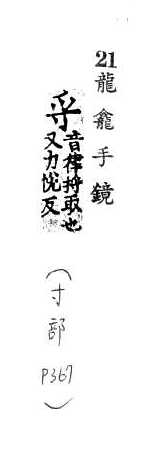 21龍龕手鏡
寽音律捋取也
又力悅反
（寸部P367）